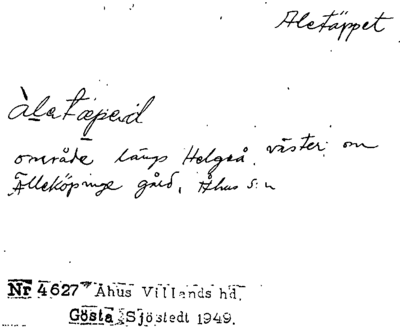 Aletäppet
område längs Helgeå, väster om
Älleköpinge gård, Åhus s:n
Nr 4627 Åhus Villands hd.
Gösta Sjöstedt 1949.